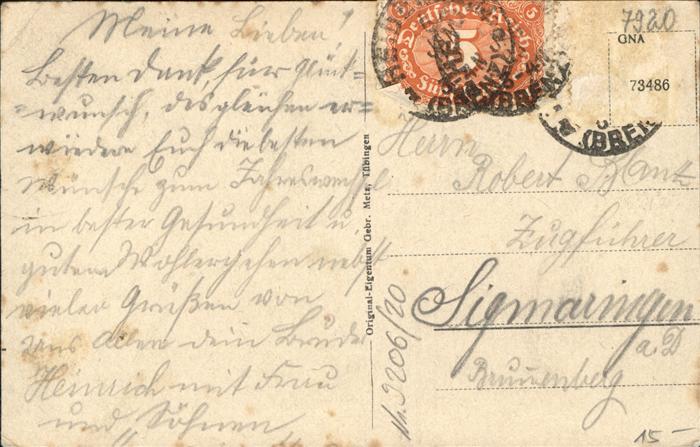 Meine Lieben!
Besten Dank, für Glück-
wunsch, desgleichen er-
wiedere Euch die besten
Wünsche zum Jahreswechsel
in bester Gesundheit u.
gutem Wohlergehen nebst
vielen Grüßen von
uns Allen dein Bruder
Heinrich mit Frau
und Söhnen
Original-Eigentum Gebr. Metz, Tübingen
Deutsches Reich
5
5
(BRENZ)
(BREN
7920
GNA
73486
Herrn
Robert
Zugführer
Sigmaringen
a.D
Brunnenberg
15 -